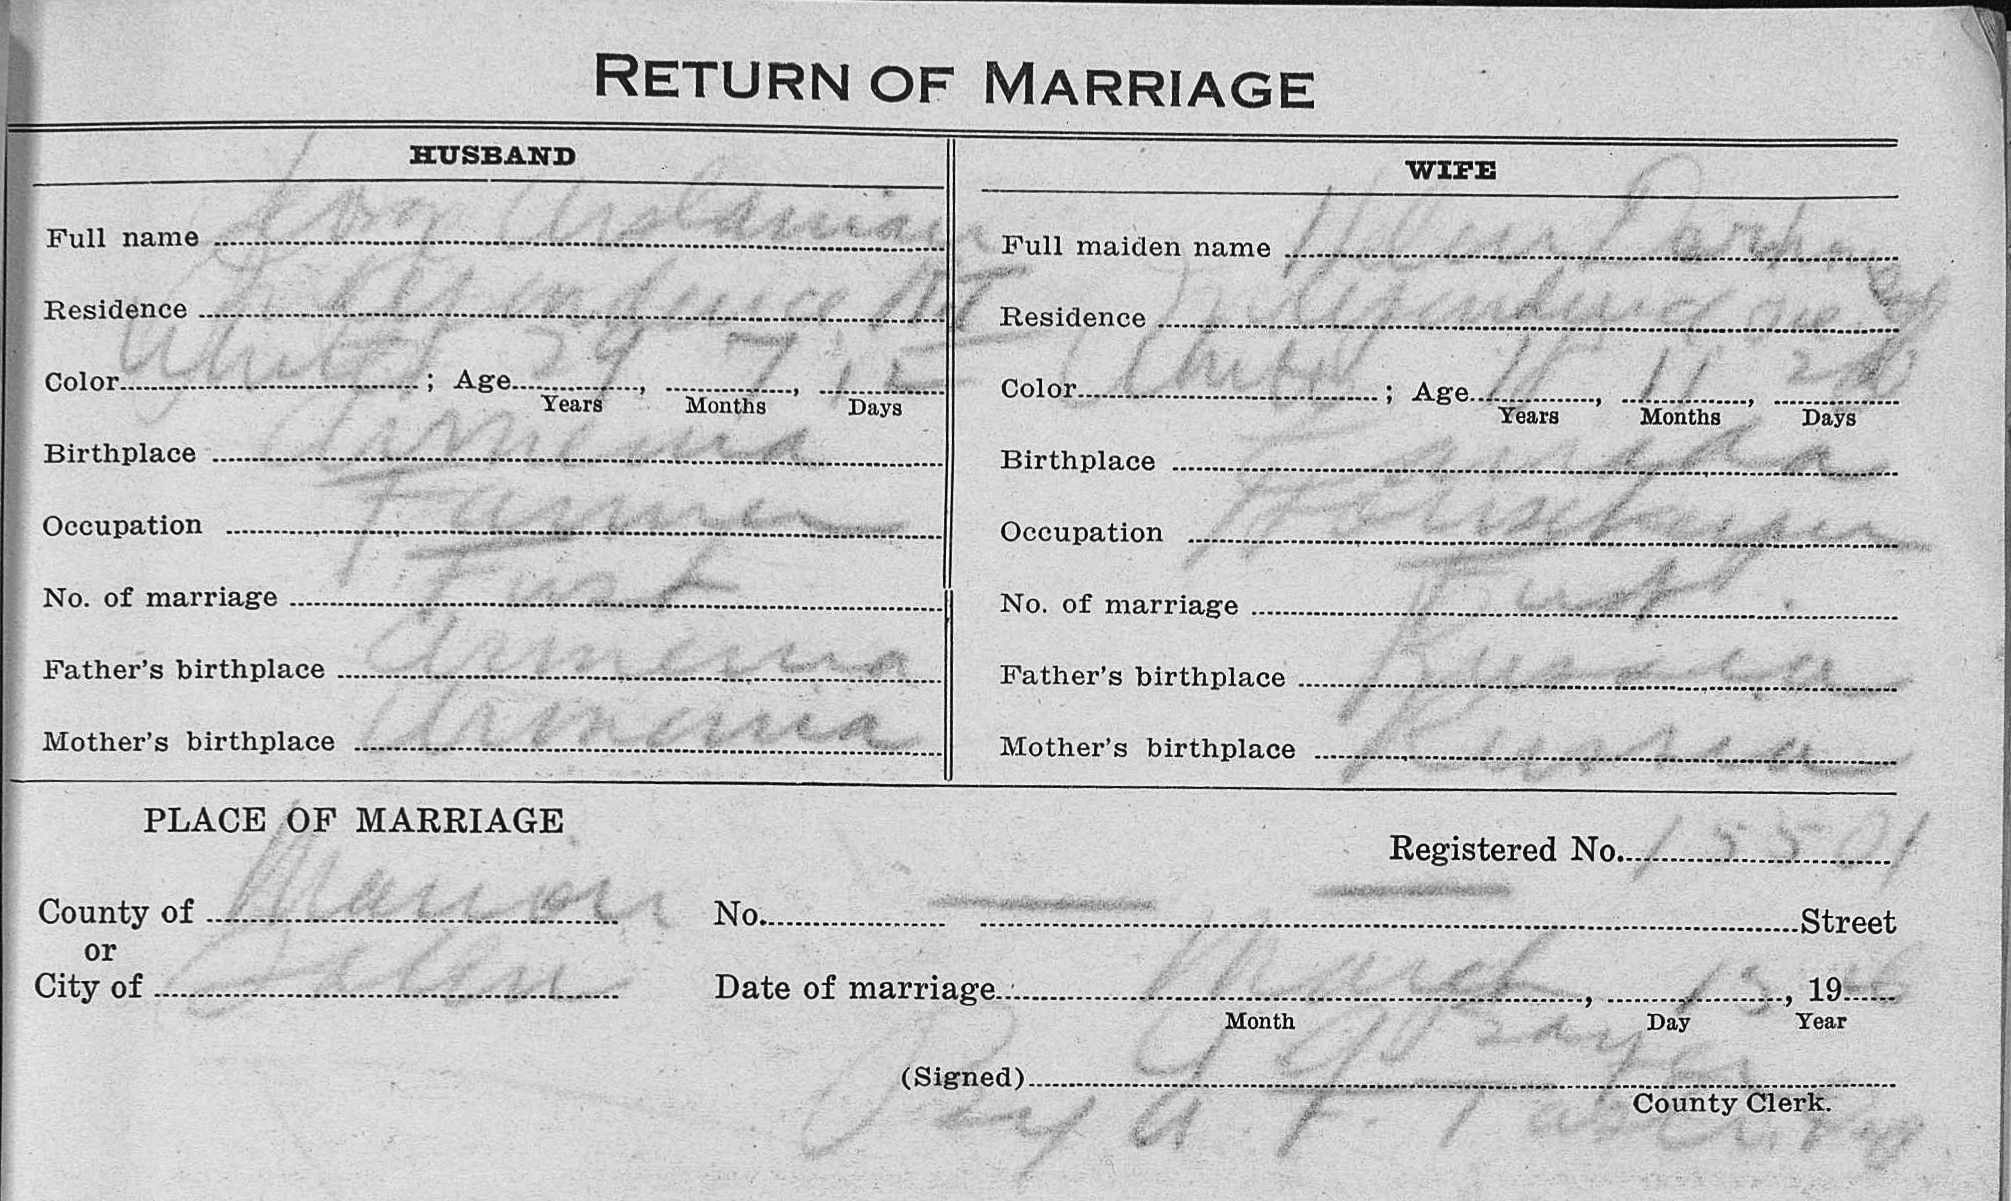 RETURN OF MARRIAGE
HUSBAND
Full name Arslanian
Residence Independence
Color White ; Age 29 Years, 7 Months, 15 Days
Birthplace Armenia
Occupation Farmer
No. of marriage First
Father's birthplace Armenia
Mother's birthplace Armenia
WIFE
Full maiden name Helen
Residence Independence Ore.
Color White ; Age 18 Years, 11 Months, Days
Birthplace Canada
Occupation Housekeeper
No. of marriage First.
Father's birthplace Russia
Mother's birthplace Russia
PLACE OF MARRIAGE
Registered No. 15501
County of Marion
or
City of Salem
No. Street
Date of marriage March Month, Day, 19 Year
(Signed)
County Clerk.